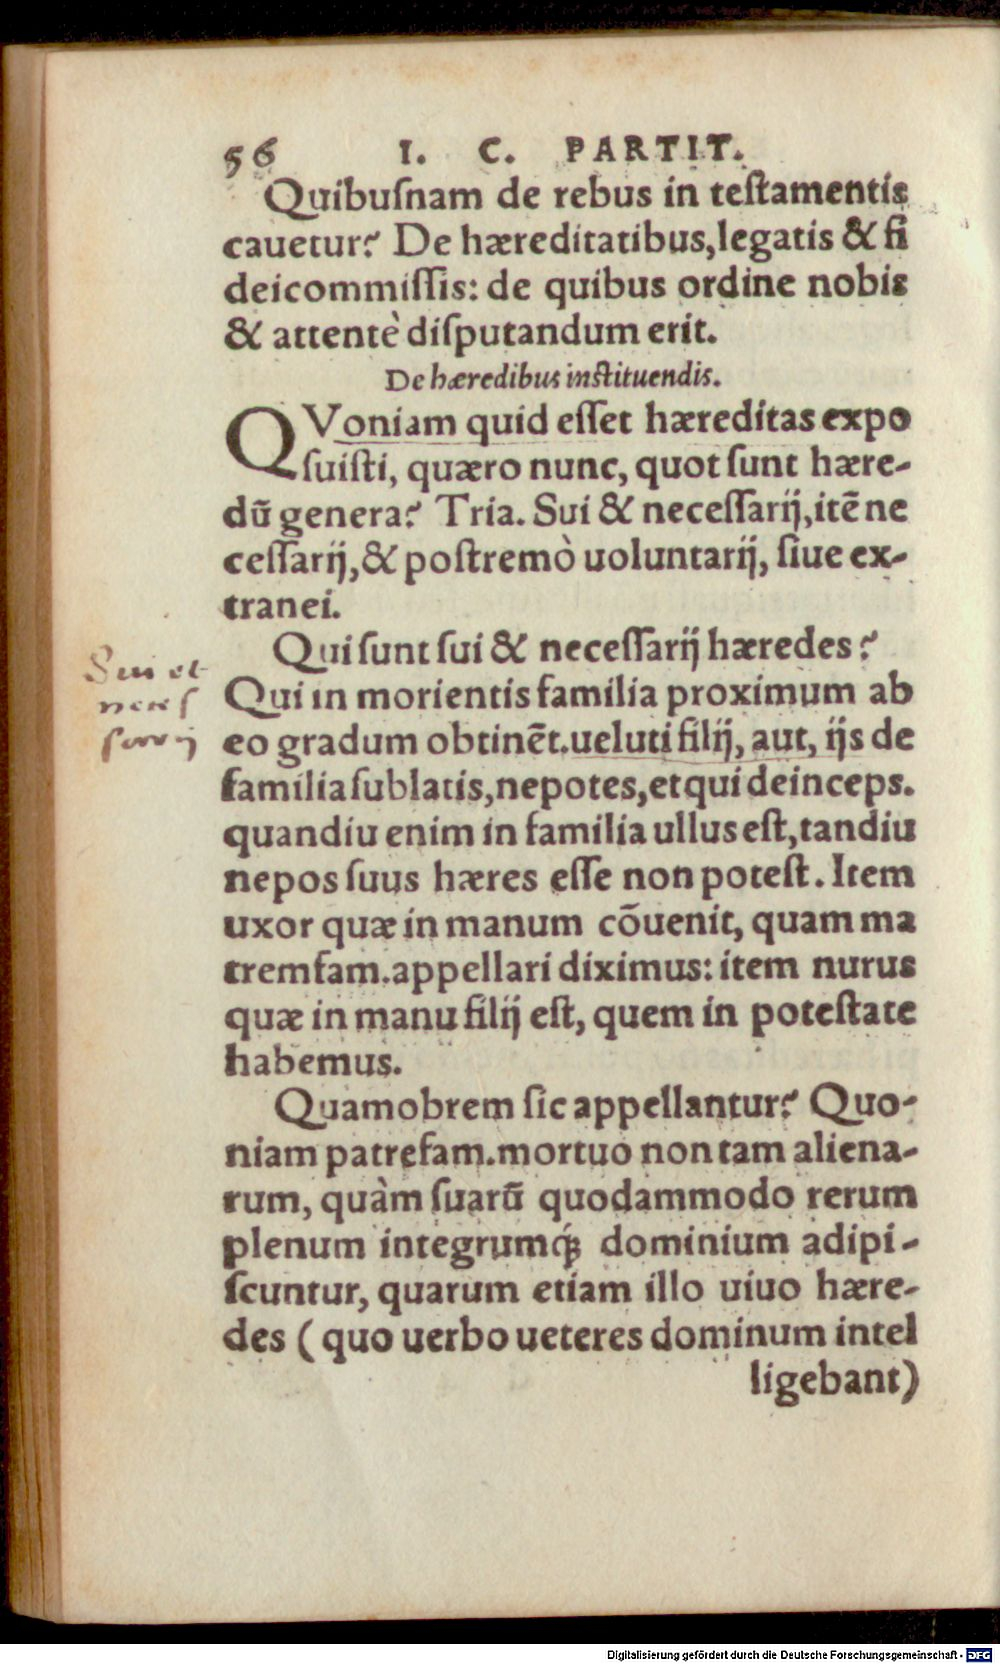 56 I. C. PARTIT.
Quibuſnam de rebus in teſtamentis
cauetur? De hæreditatibus,legatis & fi
deicommiſſis: de quibus ordine nobis
& attentè diſputandum erit.
De hæredibus inſtituendis.
QVoniam quid eſſet hæreditas expo
ſuiſti, quæro nunc, quot ſunt hære-
dū genera? Tria. Sui & neceſſarij,itē ne
ceſſarij,& poſtremò uoluntarij, ſiue ex-
tranei.
Qui ſunt ſui & neceſſarij hæredes?
Sui et
neceſ
ſarij
Qui in morientis familia proximum ab
eo gradum obtinēt.ueluti filij, aut, ijs de
familia ſublatis,nepotes,et qui deinceps.
quandiu enim in familia ullus eſt,tandiu
nepos ſuus hæres eſſe non poteſt. Item
uxor quæ in manum cōuenit, quam ma
tremfam.appellari diximus: item nurus
quæ in manu filij eſt, quem in poteſtate
habemus.
Quamobrem ſic appellantur? Quo-
niam patrefam.mortuo non tam aliena-
rum, quàm ſuarū quodammodo rerum
plenum integrumq́; dominium adipi-
ſcuntur, quarum etiam illo uiuo hære-
des (quo uerbo ueteres dominum intel
ligebant)
Digitalisierung gefördert durch die Deutsche Forschungsgemeinschaft - DFG